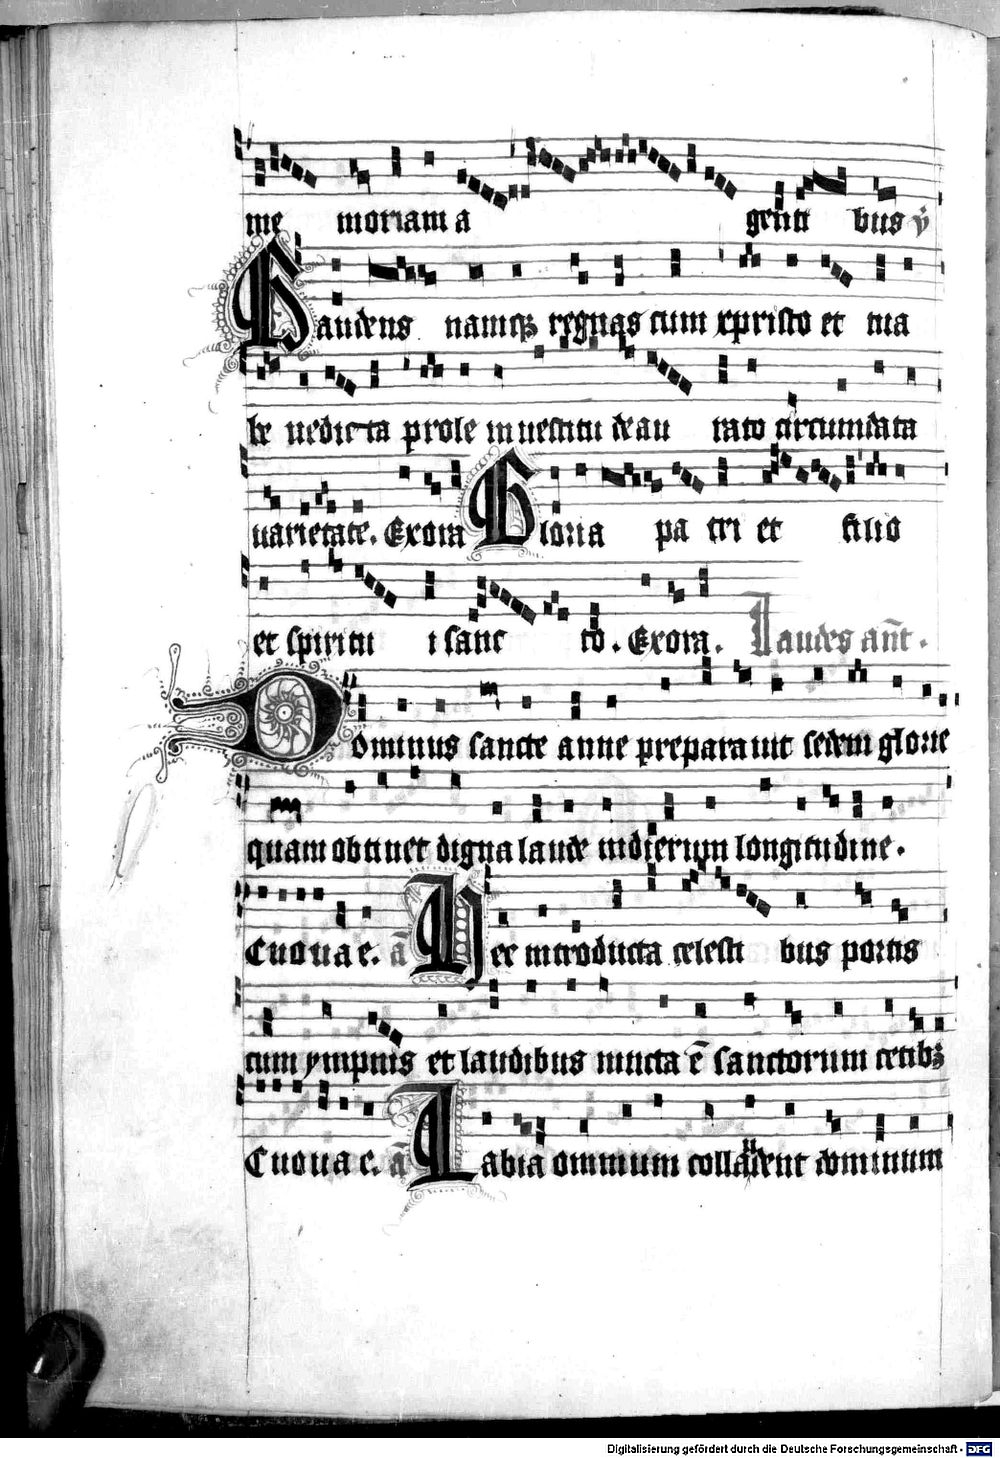 me moriam a genti bus ℣
Gaudens namqꝫ regnas cum xpristo et tua
be nedicta prole in uestitu deau rato circumdata
uarietate. Exora Gloria pa tri et filio
et spiritu i sanc to. Exora. Laudes an̄t.
Dominus sancte anne preparauit sedem glorie
quam obtinet digna laude indierum longitudine.
Euouae. a̅ Hec introducta celesti bus portis
cum ympnis et laudibus iuncta e̅ sanctorum cetibꝫ
Euouae. a̅ Labia omnium collaudent dominum
Digitalisierung gefördert durch die Deutsche Forschungsgemeinschaft - DFG